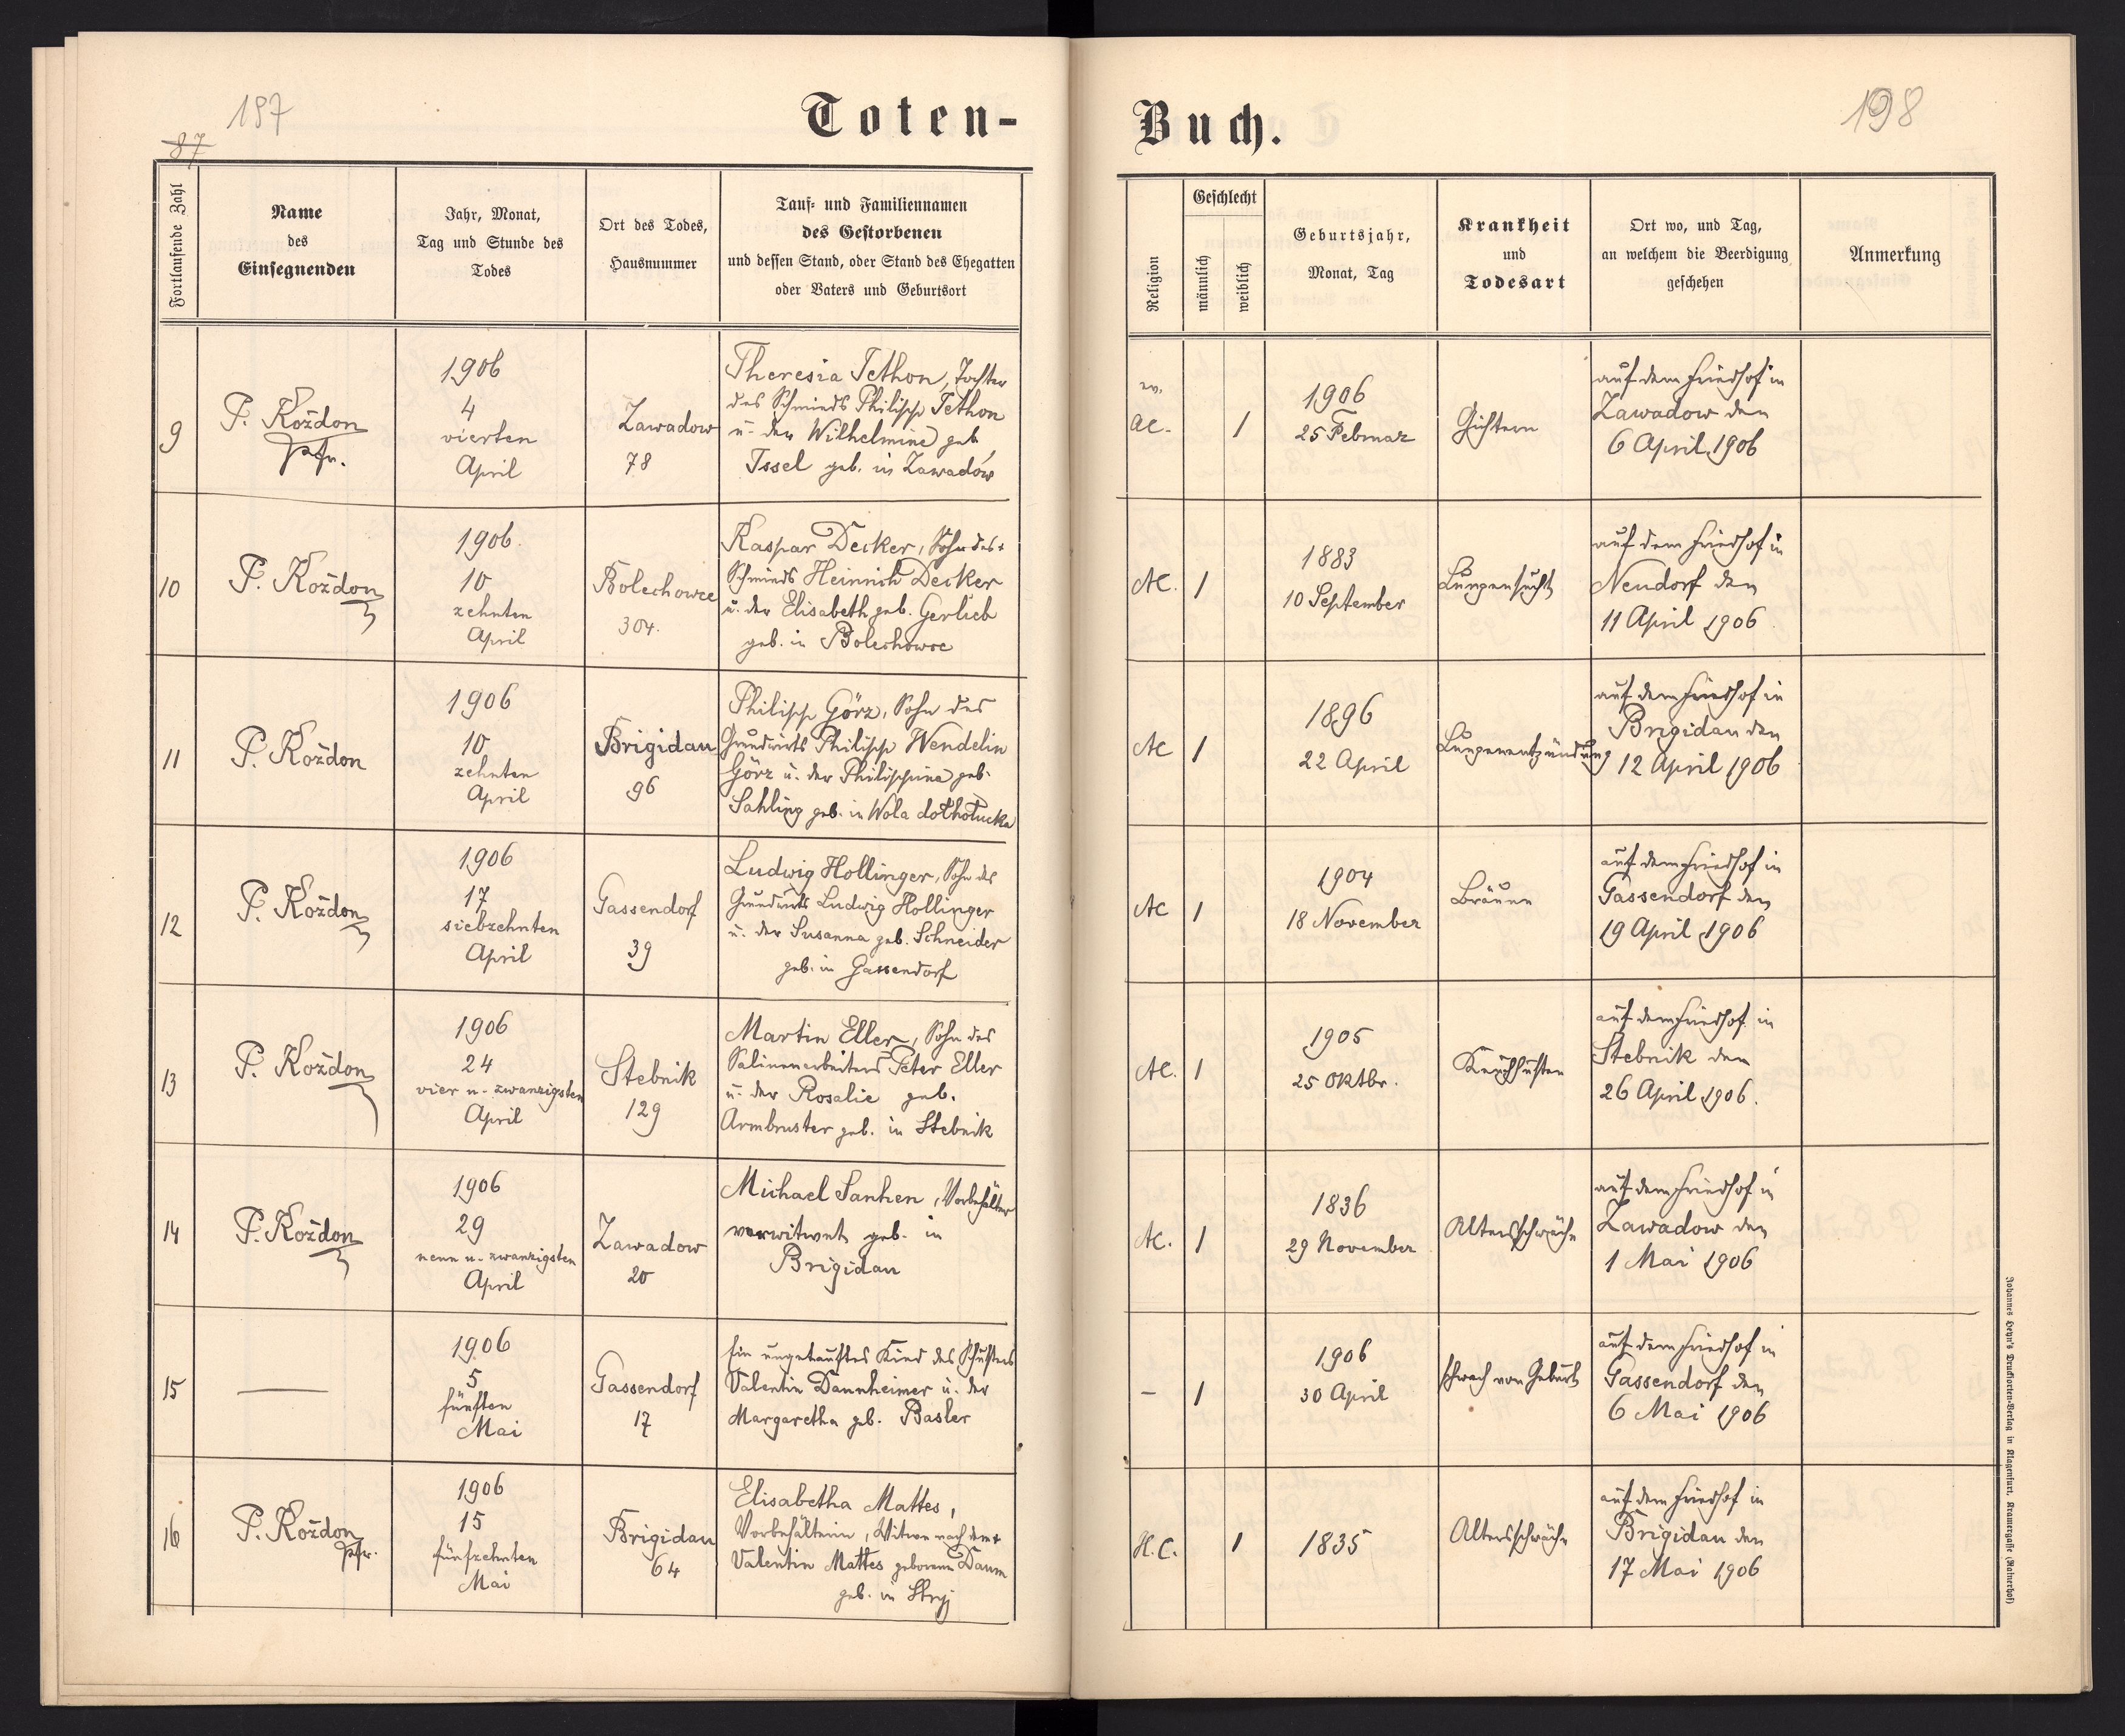 197
87
Toten-
Fortlaufende Zahl
Name
des
Einsegnenden
Jahr, Monat,
Tag und Stunde des
Todes
Ort des Todes,
Hausnummer
Tauf- und Familiennamen
des Gestorbenen
und dessen Stand, oder Stand des Ehegatten
oder Vaters und Geburtsort
9
P. Kożdon
Pfr.
1906
4
vierten
April
Zawadow
78
Theresia Tethon, Tochter
des Schmieds Philipp Tethon
u. der Wilhelmine geb
Issel geb. in Zawadów
10
P. Kożdon
1906.
10
zehnten
April
Bolechowce
304.
Kaspar Decker, Sohn des +
Schmieds Heinrich Decker
u. der Elisabeth geb. Gerlieb
geb. in Bolechowce
11
P. Kożdon
1906
10
zehnten
April
Brigidau
96
Philipp Görz, Sohn des
Grundwirts Philipp Wendelin
Görz u. der Philippine geb.
Sahling geb. in Wola
12
P. Kożdon
1906
17
siebzehnten
April
Gassendorf
39
Ludwig Hollinger, Sohn des
Grundwirts Ludwig Hollinger
u. der Susanna geb. Schneider
geb. in Gassendorf
13
P. Kożdon
1906
24
vier u. zwanzigsten
April
Stebnik
129
Martin Eller, Sohn des
Salinenarbeiters Peter Eller
u. der Rosalie geb.
Armbruster geb. in Stebnik
14
P. Kożdon
1906
29
neun u. zwanzigsten
April
Zawadow
20
Michael Manz, Vorbehälter
verwitwet geb. in
Brigidau
15
—
1906
5
fünften
Mai
Gassendorf
17
Ein ungetauftes Kind des Schusters
Valentin Dannheimer u. der
Margaretha gb. Basler
16
P. Kożdon
Pfr.
1906
15
fünfzehnten
Mai
Brigidau
64
Elisabetha Mattes,
Vorbehälterin, Witwe nach dem +
Valentin Mattes geborene Daum
geb. in Stryj
198
Buch.
Religion
Geschlecht
männlich
weiblich
Geburtsjahr,
Monat, Tag
Krankheit
und
Todesart
Ort wo, und Tag,
an welchem die Beerdigung
geschehen
Anmerkung
ev.
AC.
1
1906
25 Februar
Gichtern
auf dem Friedhof in
Zawadow den
6 April 1906
AC.
1
1883
10 September
Lungensucht
auf dem Friedhof in
Neudorf den
11 April 1906
AC
1
1896
22 April
Lungenentzündung
auf dem Friedhof in
Brigidau den
12 April 1906
AC
1
1904
18 November
Bräune
auf dem Friedhof in
Gassendorf den
19 April 1906
AC.
1
1905
25 Oktbr.
Keuchhusten
auf dem Friedhof in
Stebnik den
26 April 1906.
AC.
1
1836
29 November
Altersschwäche
auf dem Friedhof in
Zawadow den
1 Mai 1906
–
1
1906
30 April
schwach von Geburt
auf dem Friedhof in
Gassendorf den
6 Mai 1906
H.C.
1
1835
Altersschwäche
auf dem Friedhof in
Brigidau den
17 Mai 1906
Johannes Heyn's Drucksorten-Verlag in Klagenfurt, Kramergasse (Rainerhof)